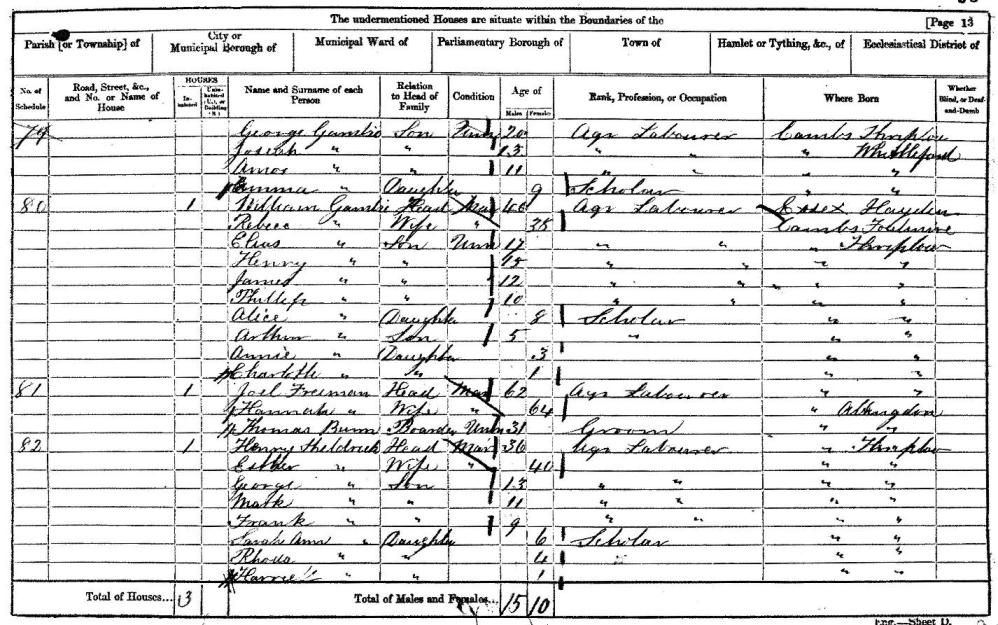 The undermentioned Houses are situate within the Boundaries of the [Page 13
Parish [or Township] of City or Municipal Borough of Municipal Ward of Parliamentary Borough of Town of Hamlet or Tything, &c., of Ecclesiastical District of
No. of Schedule Road, Street, &c., and No. or Name of House HOUSES Inhabited Uninhabited (U.), or Building (B.) Name and Surname of each Person Relation to Head of Family Condition Age of Males Females Rank, Profession, or Occupation Where Born Whether Blind, or Deaf-and-Dumb
79 George Gambie Son Unm 20 Agr Labourer Cambs Thriplow
Joseph " " 13 " " " Whittlesford
Amos " " 11 " " " "
Emma " Daughter 9 Scholar " "
80 1 William Gambie Head Mar 46 Agr Labourer Essex Haydon
Rebecc " Wife " 38 Cambs Foulmire
Elias " Son Unm 17 " " " Thriplow
Henry " " 15 " " " "
James " " 12 " " " "
Phillip " " 10 " " " "
Alice " Daughter 8 Scholar " "
Arthur " Son 5 " " "
Annie " Daughter 3 " "
Charlotte " " 1 " "
81 1 Joel Freeman Head Mar 62 Agr Labourer " "
Hannah " Wife " 64 " Abbingdon
Thomas Bunn Boarder Unm 31 Groom " "
82 1 Henry Sheldrick Head Mar 36 Agr Labourer " Thriplow
Esther " Wife " 40 " "
George " Son 13 " " " "
Mark " " 11 " " " "
Frank " " 9 " " " "
Sarah Ann " Daughter 6 Scholar " "
Rhoda " " 4 " " "
" " 1 " "
Total of Houses... 3 Total of Males and Females... 15 10
Eng.—Sheet D.